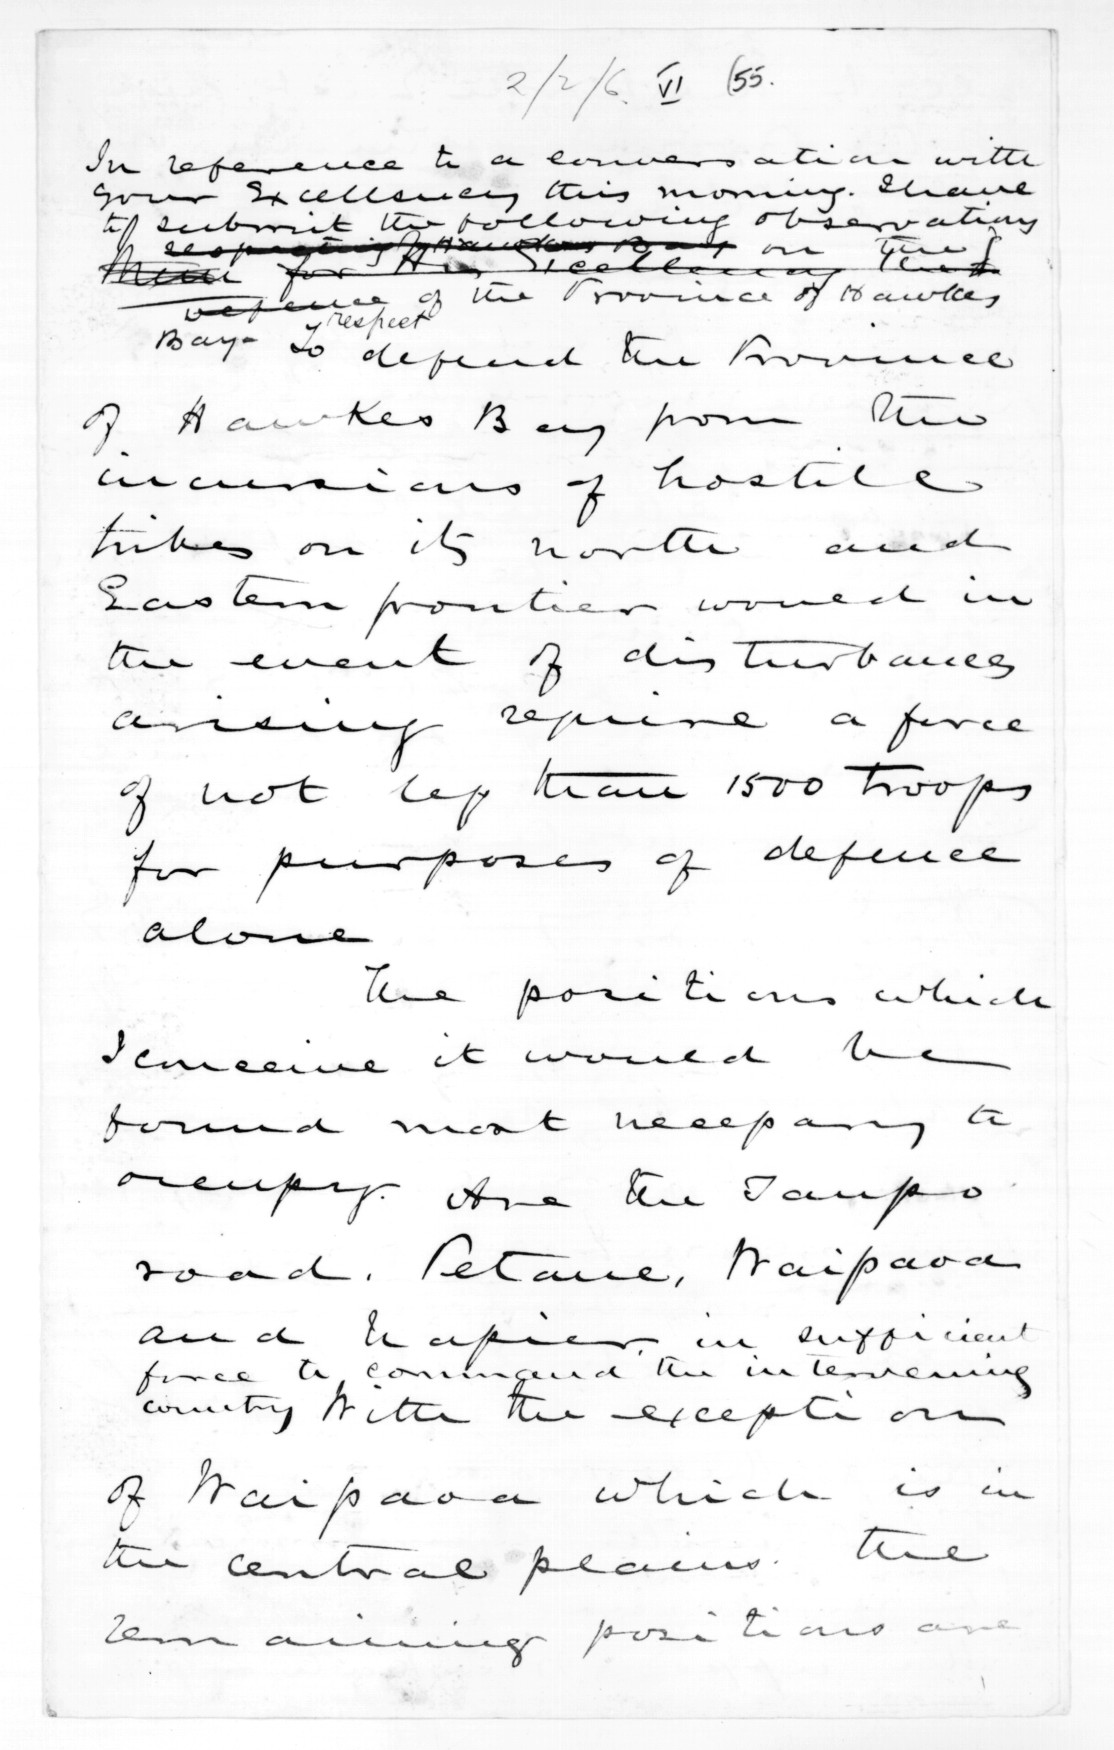 2/2/6. VI (55.
In reference to a conversation with
your Excellency this morning. I have
to submit the following observations
respecting Hawkes Bay on the
Mem for His Excellency the
defence of the Province of Hawkes
Bay - To respect
defend the Province
of Hawkes Bay from the
incursions of hostile
tribes on its north and
Eastern frontier would in
the event of disturbances
arising require a force
of not less than 1500 troops
for purposes of defence
alone
The positions which
I conceive it would be
found most necessary to
occupy. Are the Taupo
road. Petane, Waipaoa
and Napier, in sufficient
force to command the intervening
country With the exception
of Waipaoa which is in
the central plains. the
remaining positions are